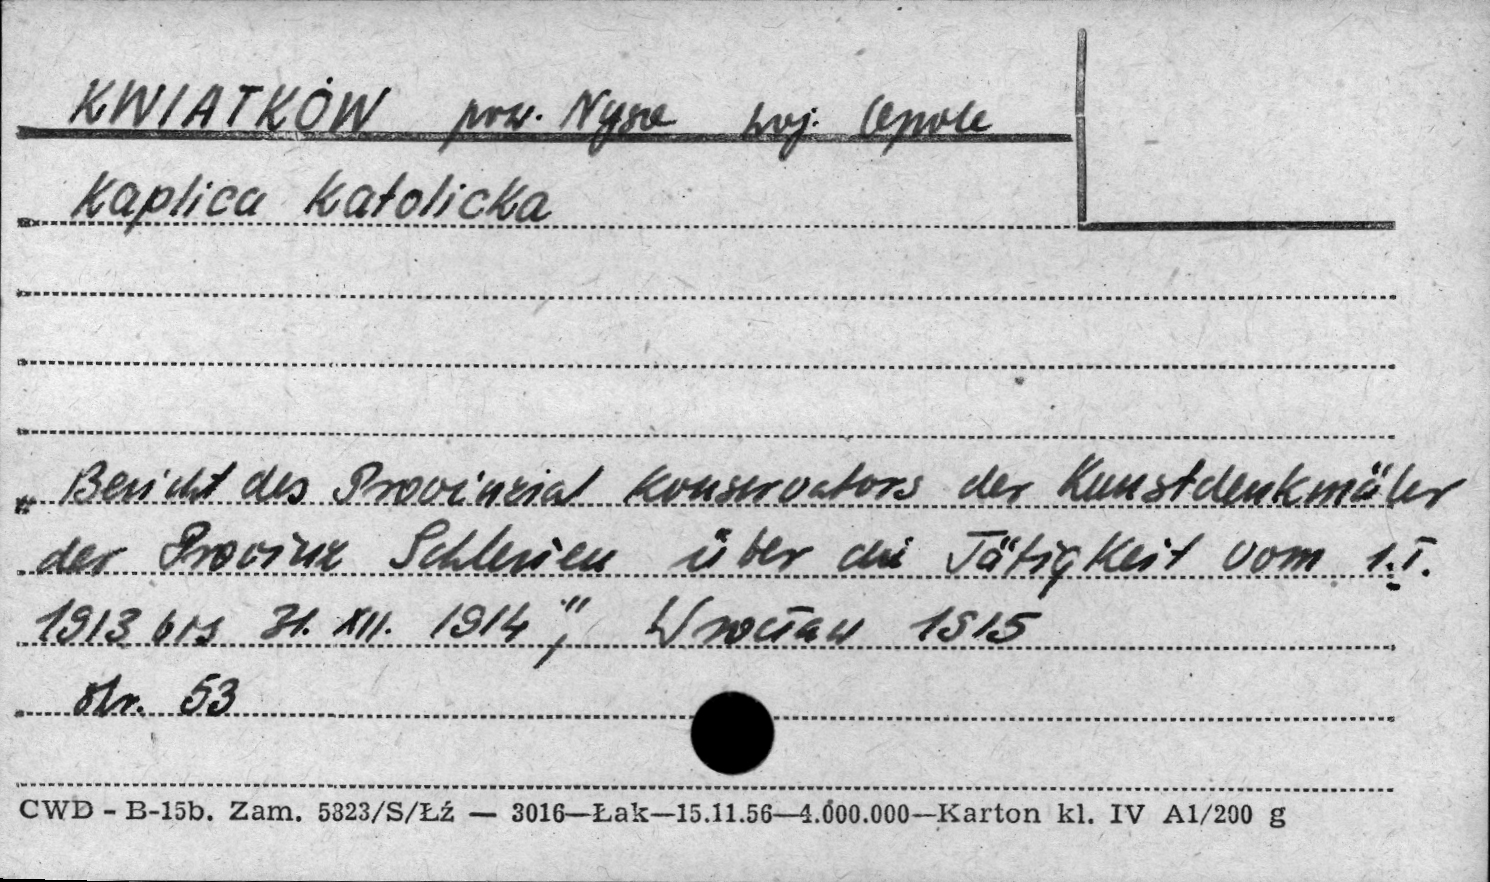 KWIATKÓW pow. Nysa woj. Opole
Kaplica Katolicka
„Bericht des Provinzial Konservators der Kunstdenkmäler
der Provinz Schlesien über die Tätigkeit vom 1.I.
1913 bis 31. XII. 1914", Wrocław 1915
str. 53
CWD - B-15b. Zam. 5323/S/Łź — 3016—Łak—15.11.56—4.000.000—Karton kl. IV A1/200 g